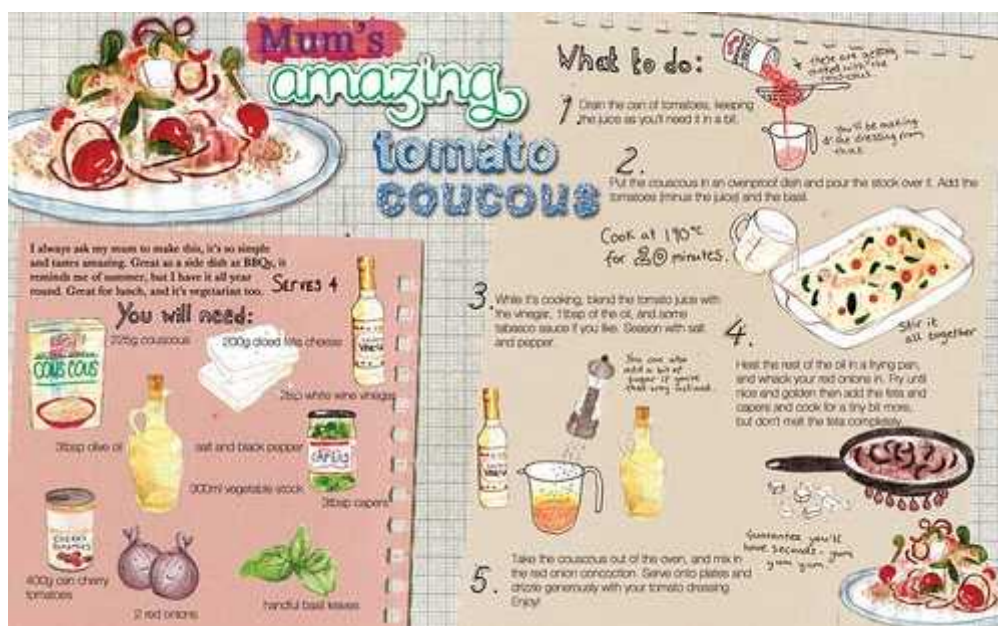 Mum's
amazing
tomato
coucous
I always ask my mum to make this, it's so simple
and tastes amazing. Great as a side dish at BBQs, it
reminds me of summer, but I have it all year
round. Great for lunch, and it's vegetarian too.
SERVES 4
You will need:
225g couscous
200g diced feta cheese
COUS COUS
VINEGAR
2tbsp white wine vinegar
3tbsp olive oil
salt and black pepper
CAPERS
300ml vegetable stock
3tbsp capers
CHERRY
TOMATOES
400g can cherry
tomatoes
2 red onions
handful basil leaves
What to do:
these are getting
mixed with the
couscous
1 Drain the can of tomatoes, keeping
the juice as you'll need it in a bit.
You'll be making
the dressing from
this.
2.
Put the couscous in an ovenproof dish and pour the stock over it. Add the
tomatoes (minus the juice) and the basil.
Cook at 190°C
for 20 minutes.
Stir it
all together
3.
While it's cooking, blend the tomato juice with
the vinegar, 1tbsp of the oil, and some
tabasco sauce if you like. Season with salt
and pepper.
You can also
add a bit of
sugar if you're
that way inclined.
4.
Heat the rest of the oil in a frying pan,
and whack your red onions in. Fry until
nice and golden then add the feta and
capers and cook for a tiny bit more,
but don't melt the feta completely.
Guarantee you'll
have seconds - yum
yum yum
5.
Take the couscous out of the oven, and mix in
the red onion concoction. Serve onto plates and
drizzle generously with your tomato dressing.
Enjoy!